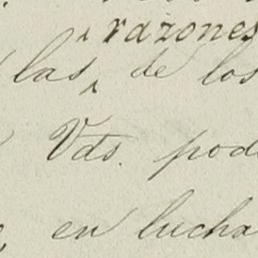 razones
las, de los
Vds. pod
en lucha